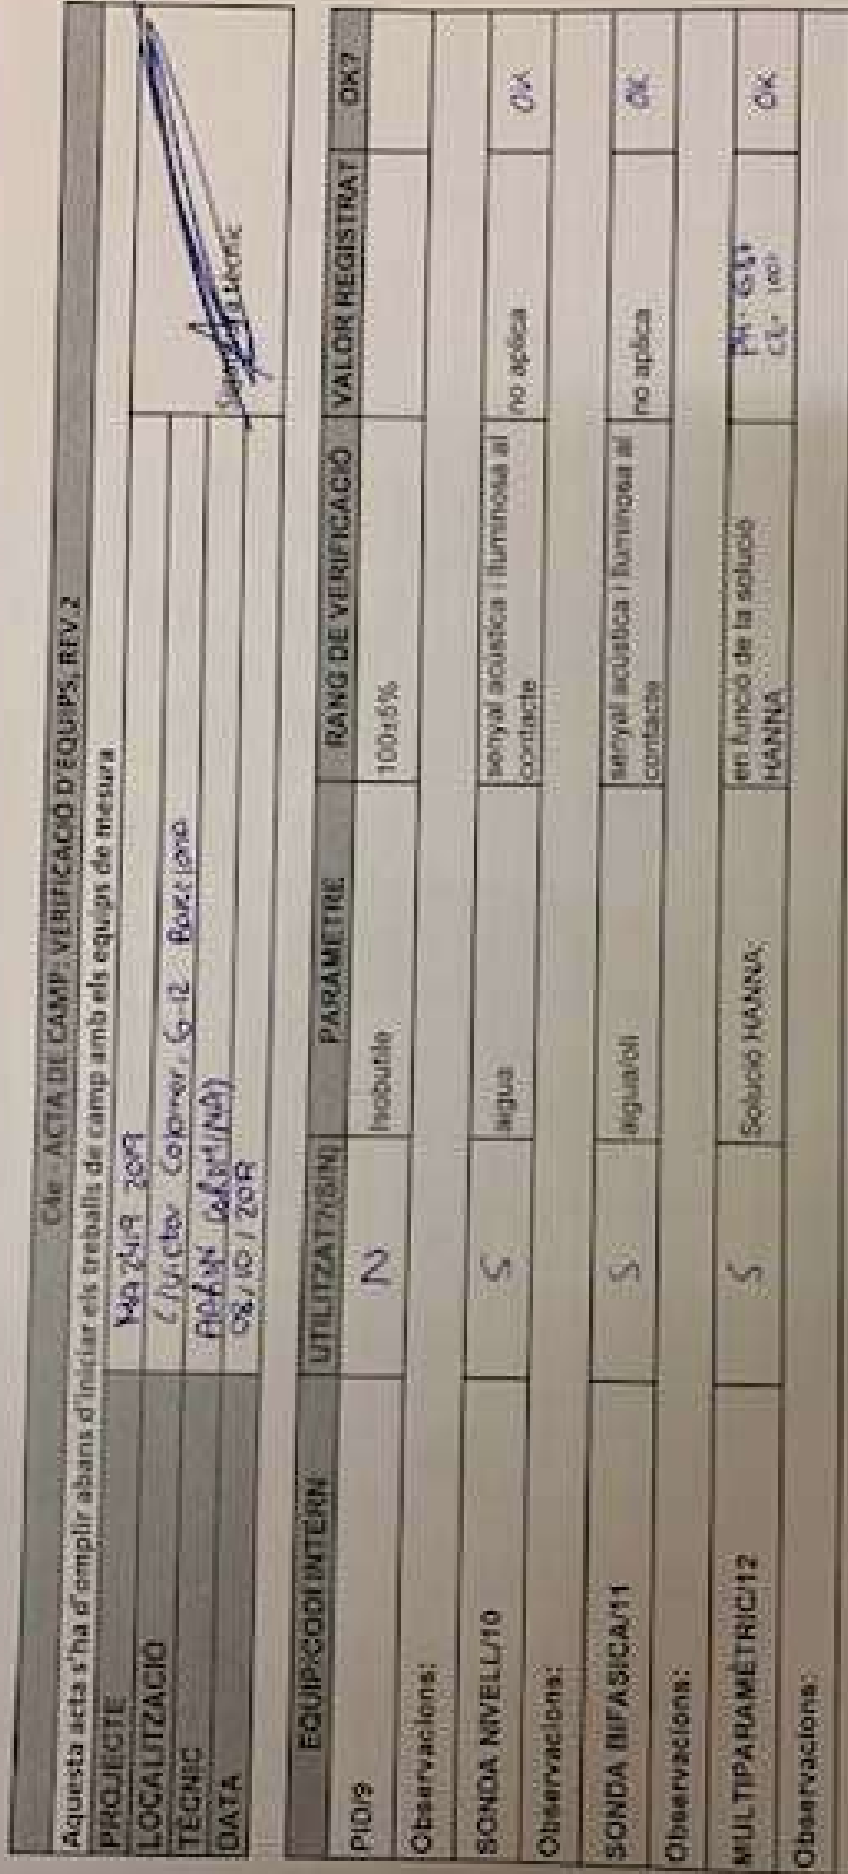 C4e - ACTA DE CAMP: VERIFICACIÓ D'EQUIPS, REV.2
Aquesta acta s'ha d'omplir abans d'iniciar els treballs de camp amb els equips de mesura.
PROJECTE
LOCALITZACIÓ C/Victor Colomer, 6-12 Barcelona
TÈCNIC
DATA 08/10/2019
EQUIP/CODI INTERN UTILITZAT?(S/N) PARÀMETRE RANG DE VERIFICACIÓ VALOR REGISTRAT OK?
PID/9 N Isobutilè 100±5%
Observacions:
SONDA NIVELL/10 S aigua senyal acústica i lluminosa al contacte no aplica OK
Observacions:
SONDA BIFÀSICA/11 S aigua/oli senyal acústica i lluminosa al contacte no aplica OK
Observacions:
MULTIPARAMÈTRIC/12 S Solució HANNA; en funció de la solució HANNA OK
Observacions: